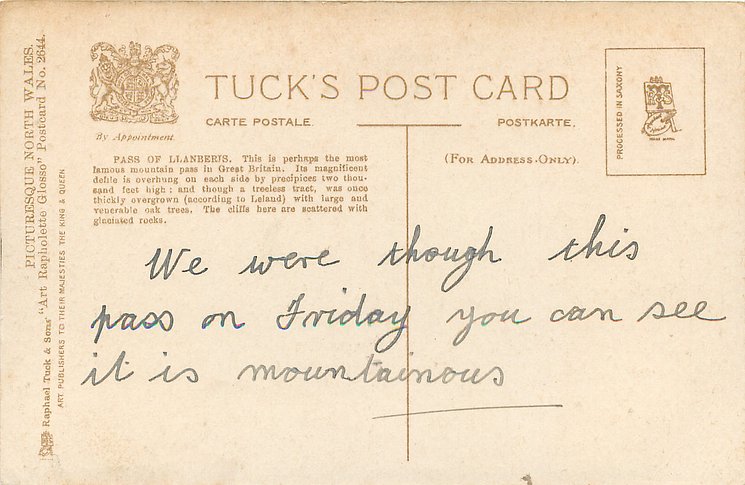 PICTURESQUE NORTH WALES.
Raphael Tuck & Sons' "Art Rapholette Glosso" Postcard No. 2644.
ART PUBLISHERS TO THEIR MAJESTIES THE KING & QUEEN
By Appointment
TUCK'S POST CARD
CARTE POSTALE.
POSTKARTE.
(FOR ADDRESS ONLY).
PROCESSED IN SAXONY
PASS OF LLANBERIS. This is perhaps the most
famous mountain pass in Great Britain. Its magnificent
defile is overhung on each side by precipices two thou-
sand feet high: and though a treeless tract, was once
thickly overgrown (according to Leland) with large and
venerable oak trees. The cliffs here are scattered with
glaciated rocks.
We were though this
pass on Friday you can see
it is mountainous